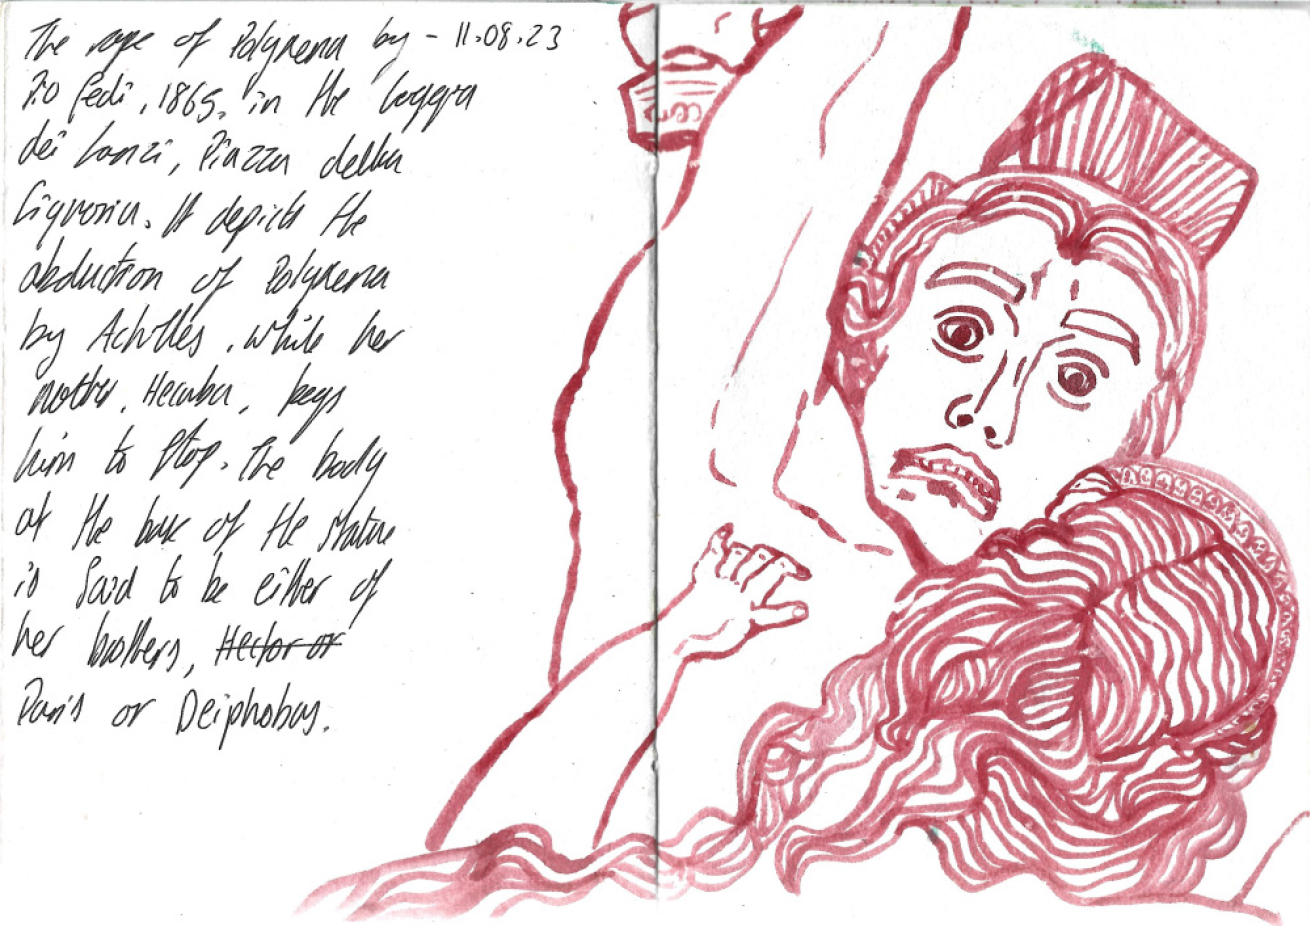 The rape of Polyxena by - 11.08.23
Pio Fedi, 1865, in the Loggia
dei Lanzi, Piazza della
Signoria. It depicts the
abduction of Polyxena
by Achilles, while her
mother, Hecuba, begs
him to stop. The body
at the base of the statue
is said to be either of
her brothers, Hector or
Paris or Deiphobus.